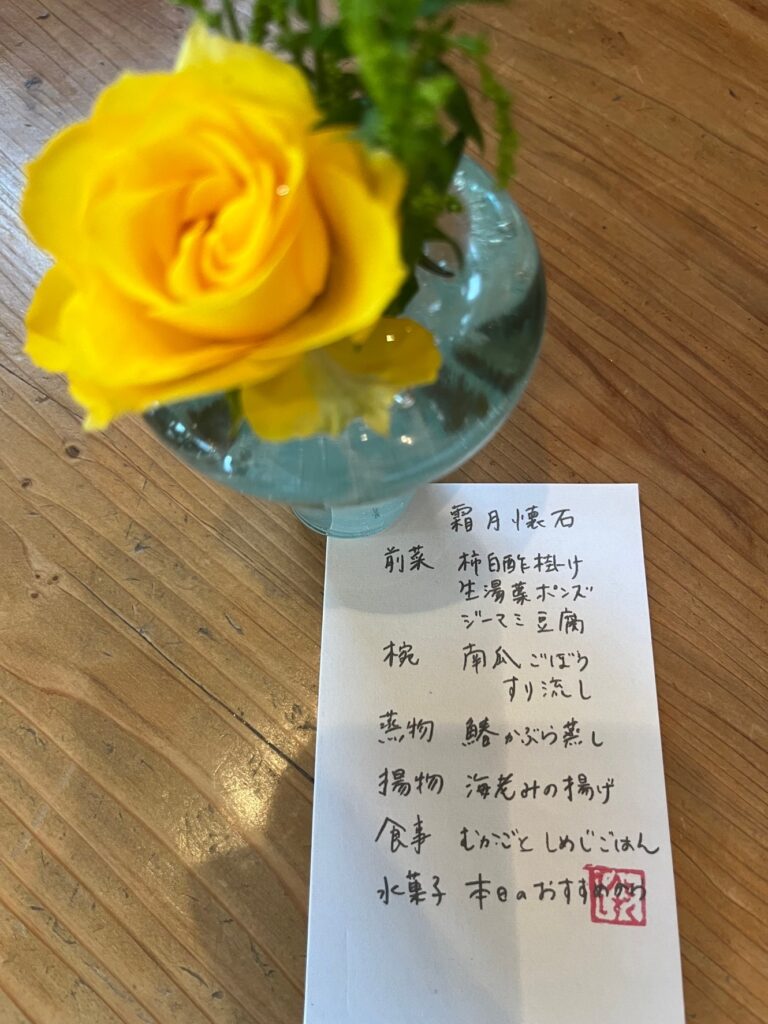 霜月懐石
前菜 柿白酢掛け
生湯葉ポンズ
ジーマミ豆腐
椀 南瓜ごぼう
すり流し
蒸物 鰆かぶら蒸し
揚物 海老みの揚げ
食事 むかごとしめじごはん
水菓子 本日のおすすめ